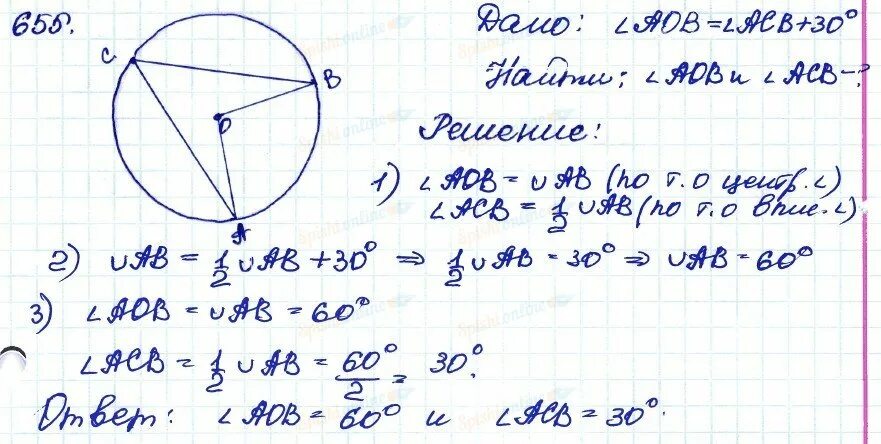 655.
Дано: ∠AOB = ∠ACB + 30°
Найти: ∠AOB и ∠ACB - ?
Решение:
C
B
O
A
1) ∠AOB = ∪AB (по т. о центр. ∠)
∠ACB = 1/2 ∪AB (по т. о впис. ∠)
2) ∪AB = 1/2 ∪AB + 30° ⇒ 1/2 ∪AB = 30° ⇒ ∪AB = 60°
3) ∠AOB = ∪AB = 60°
∠ACB = 1/2 ∪AB = 60°/2 = 30°.
Ответ: ∠AOB = 60° и ∠ACB = 30°.